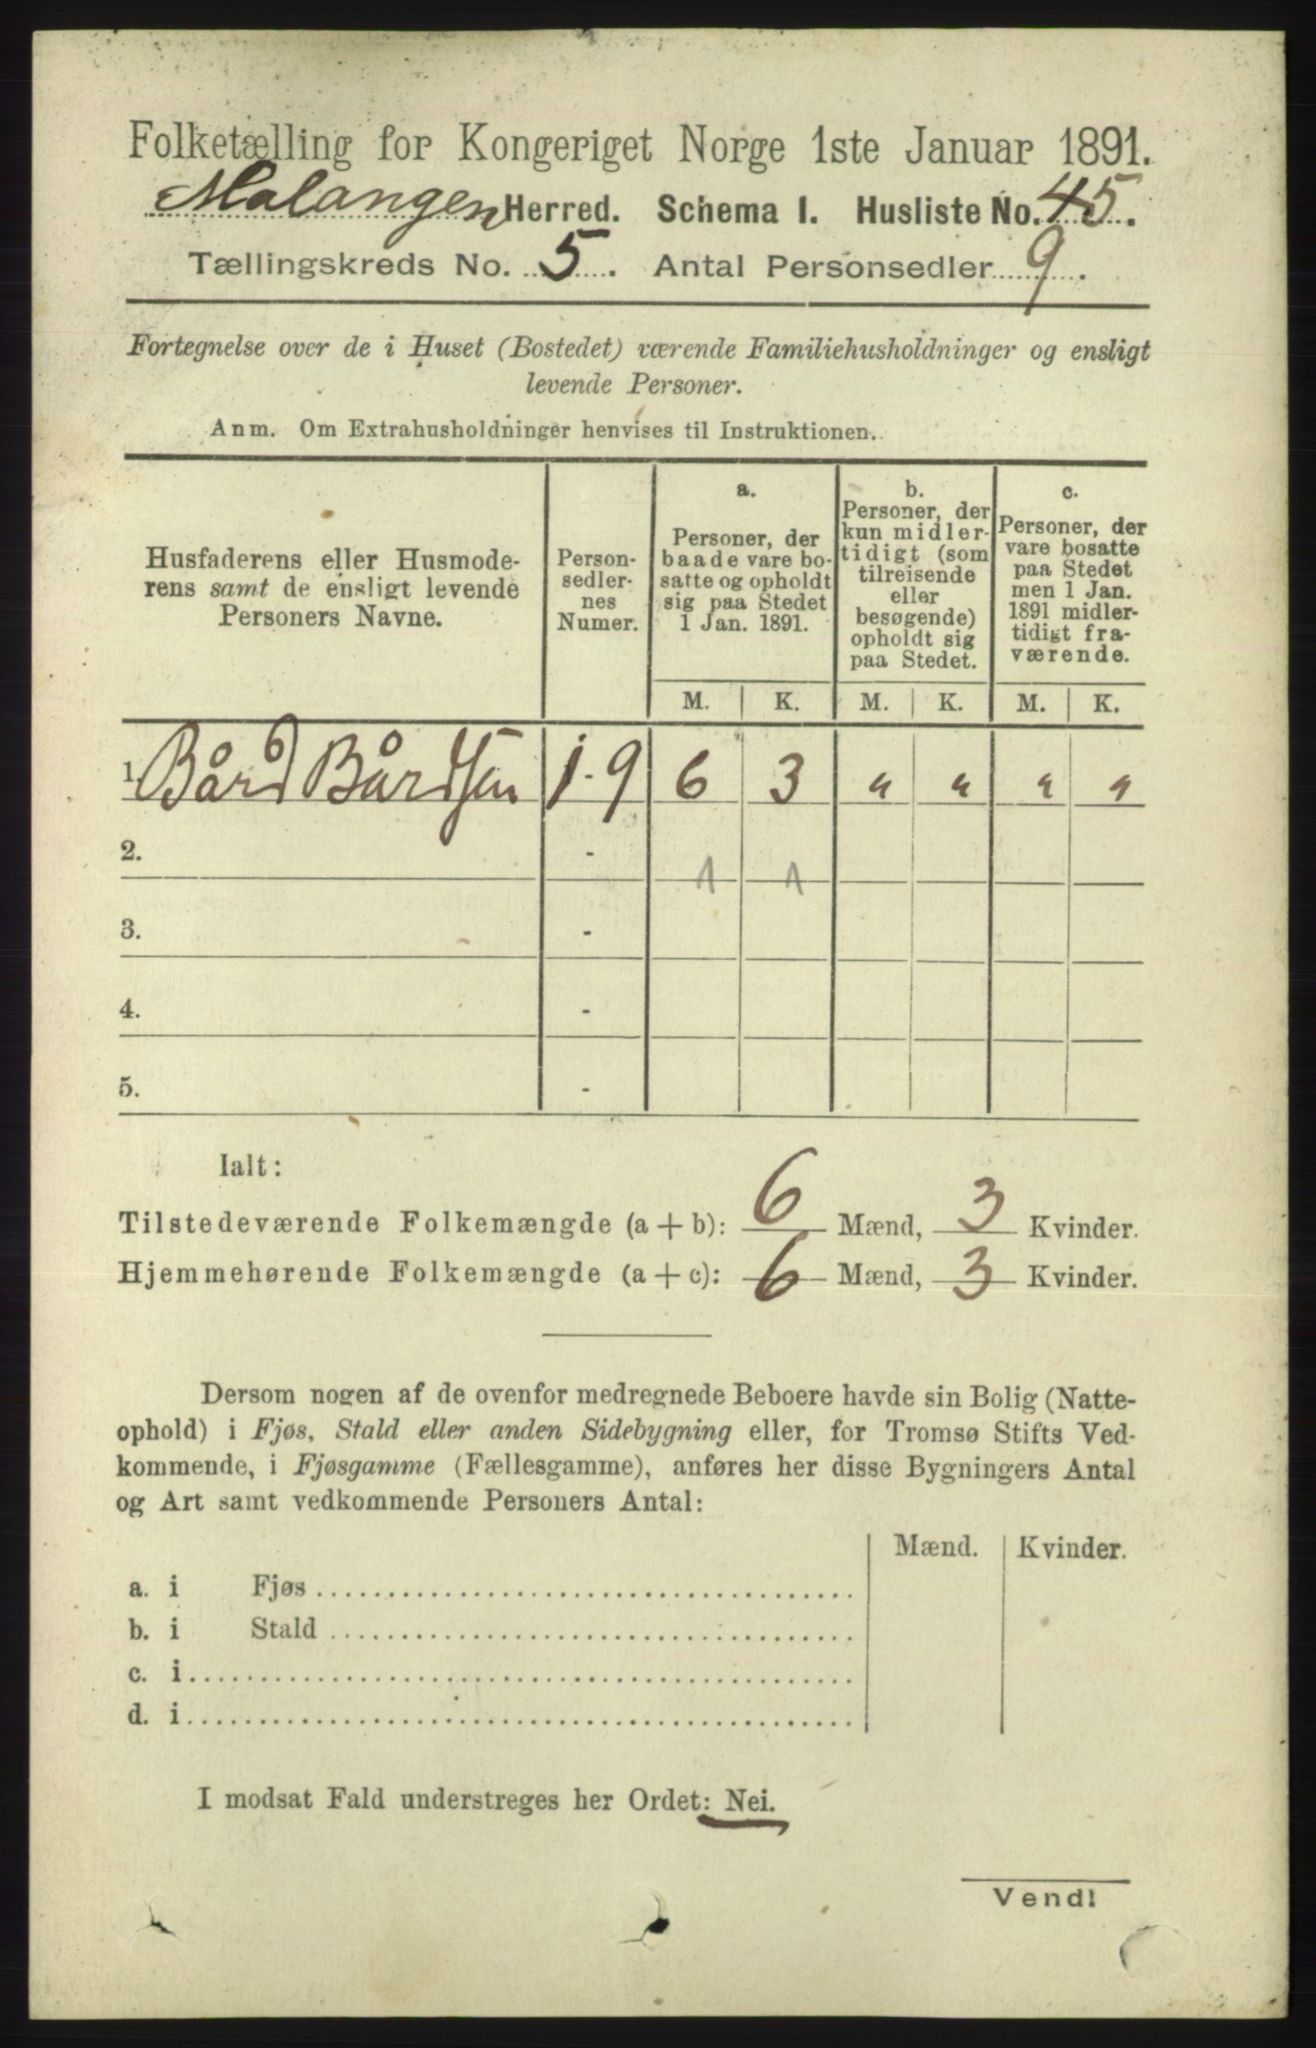 Folketælling for Kongeriget Norge 1ste Januar 1891.
Malangen Herred. Schema I. Husliste No. 45.
Tællingskreds No. 5. Antal Personsedler 9.
Fortegnelse over de i Huset (Bostedet) værende Familiehusholdninger og ensligt
levende Personer.
Anm. Om Extrahusholdninger henvises til Instruktionen.
Husfaderens eller Husmode-
rens samt de ensligt levende
Personers Navne.
Person-
sedler-
nes
Numer.
a.
Personer, der
baade vare bo-
satte og opholdt
sig paa Stedet
1 Jan. 1891.
b.
Personer, der
kun midler-
tidigt (som
tilreisende
eller
besøgende)
opholdt sig
paa Stedet.
c.
Personer, der
vare bosatte
paa Stedet
men 1 Jan.
1891 midler-
tidigt fra-
værende.
M. K. M. K. M. K.
1. Bård Bårdsen 1-9 6 3 " " " "
2. -
1 1
3. -
4. -
5. -
Ialt:
Tilstedeværende Folkemængde (a + b): 6 Mænd, 3 Kvinder.
Hjemmehørende Folkemængde (a + c): 6 Mænd, 3 Kvinder.
Dersom nogen af de ovenfor medregnede Beboere havde sin Bolig (Natte-
ophold) i Fjøs, Stald eller anden Sidebygning eller, for Tromsø Stifts Ved-
kommende, i Fjøsgamme (Fællesgamme), anføres her disse Bygningers Antal
og Art samt vedkommende Personers Antal:
Mænd. Kvinder.
a. i Fjøs
b. i Stald
c. i
d. i
I modsat Fald understreges her Ordet: Nei.
Vend!